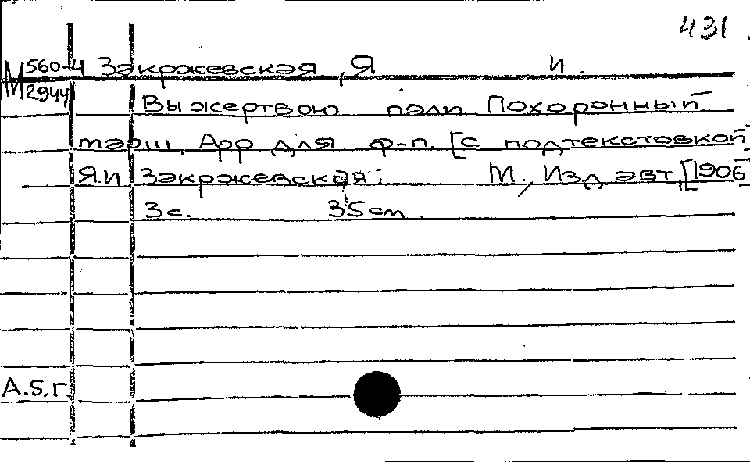 431
М 560-4 Закржевская, Я И.
2944
Вы жертвою пали Похоронный
марш. Арр для ф-п. [с подтекстовкой
Я.И Закржевская; М., Изд авт, [1906
3 с. 35 см.
А.5.г.